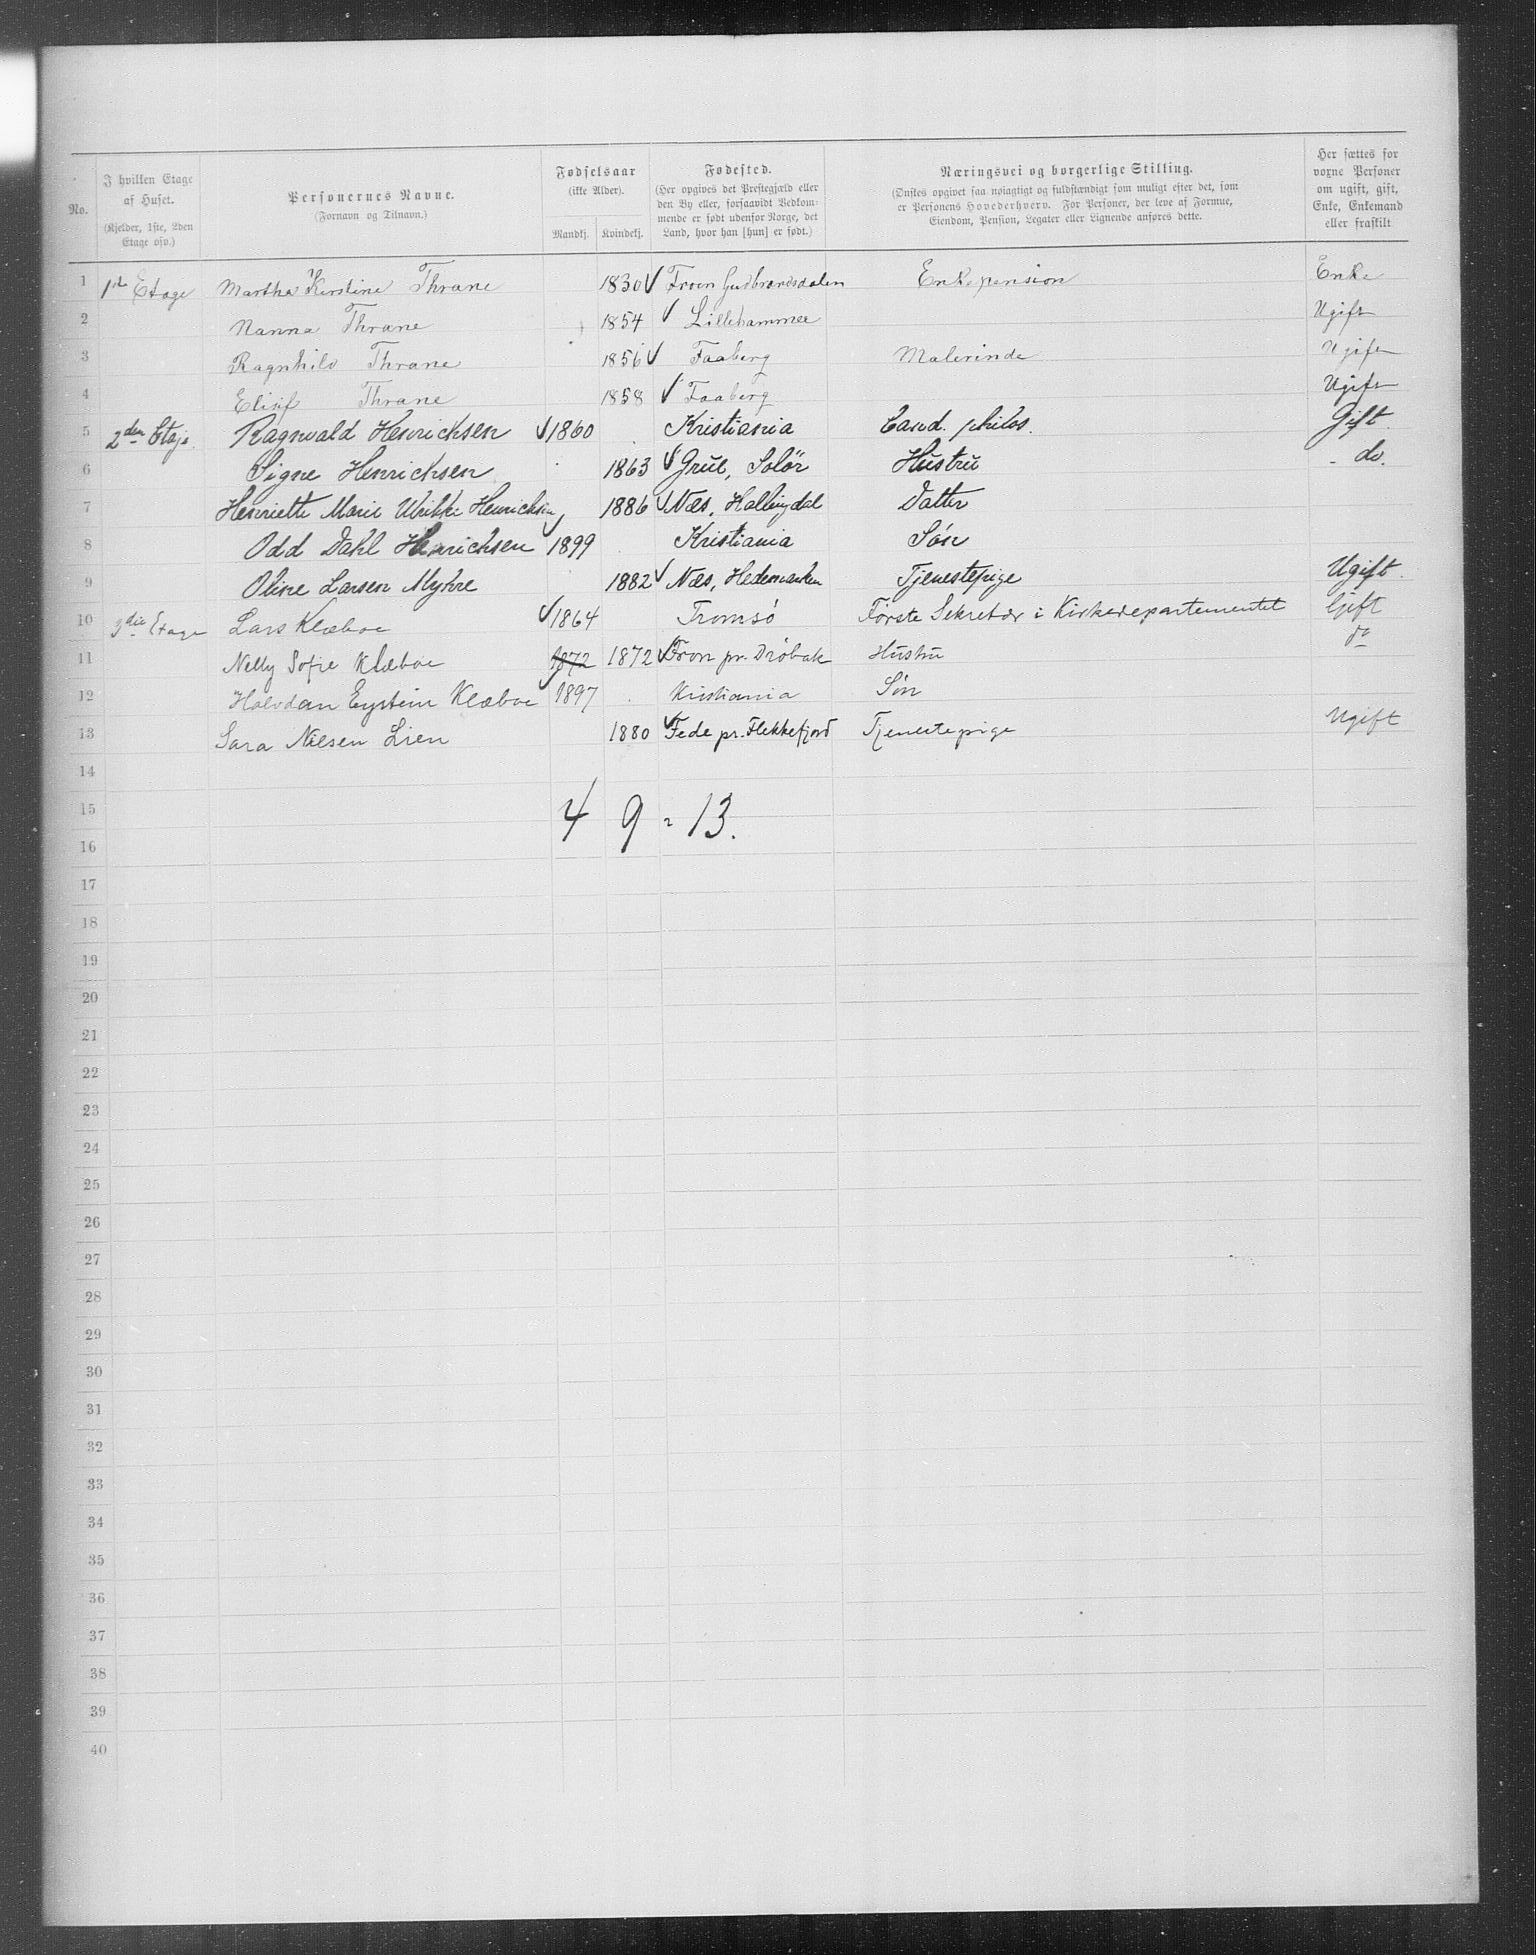 No.
I hvilken Etage af Huset.
(Kjelder, 1ste, 2den Etage osv.)
Personernes Navne.
(Fornavn og Tilnavn.)
Fødselsaar
(ikke Alder).
Mandkj. Kvindekj.
Fødested.
(Her opgives det Prestegjæld eller den By eller, forsaavidt Vedkommende er født udenfor Norge, det Land, hvor han [hun] er født.)
Næringsvei og borgerlige Stilling.
(Ønskes opgivet saa nøiagtigt og fuldstændigt som muligt efter det, som er Personens Hovederhverv. For Personer, der leve af Formue, Eiendom, Pension, Legater eller Lignende anføres dette.
Her sættes for voxne Personer om ugift, gift, Enke, Enkemand eller fraskilt
1 1ste Etage Martha Kirstine Thrane 1830 ✓ Froen Gudbrandsdalen Enkepension Enke
2 Nanna Thrane 1854 ✓ Lillehammer Ugift
3 Ragnhild Thrane 1856 ✓ Faaberg Malerinde Ugift
4 Elisif Thrane 1858 ✓ Faaberg Ugift
5 2den Etaje Ragnvald Henrichsen ✓ 1860 Kristiania Cand. philos. Gift.
6 Signe Henrichsen 1863 ✓ Grue, Solør Hustru - do.
7 Henriette Marie Ulrikke Henrichsen 1886 ✓ Næs, Hallingdal Datter
8 Odd Dahl Henrichsen 1899 Kristiania Søn
9 Oline Larsen Myhre 1882 ✓ Næs, Hedemarken Tjenestepige Ugift.
10 3die Etage Lars Klæboe ✓ 1864 Tromsø Første Sekretær i Kirkedepartementet Gift
11 Nelly Sofie Klæboe 1872 1872 ✓ Fron pr. Drøbak Hustru do
12 Halvdan Eystein Klæboe 1897 Kristiania Søn
13 Sara Nilsen Lien 1880 ✓ Fede pr. Flekkefjord Tjenestepige Ugift
14
15
4 9 = 13.
16
17
18
19
20
21
22
23
24
25
26
27
28
29
30
31
32
33
34
35
36
37
38
39
40